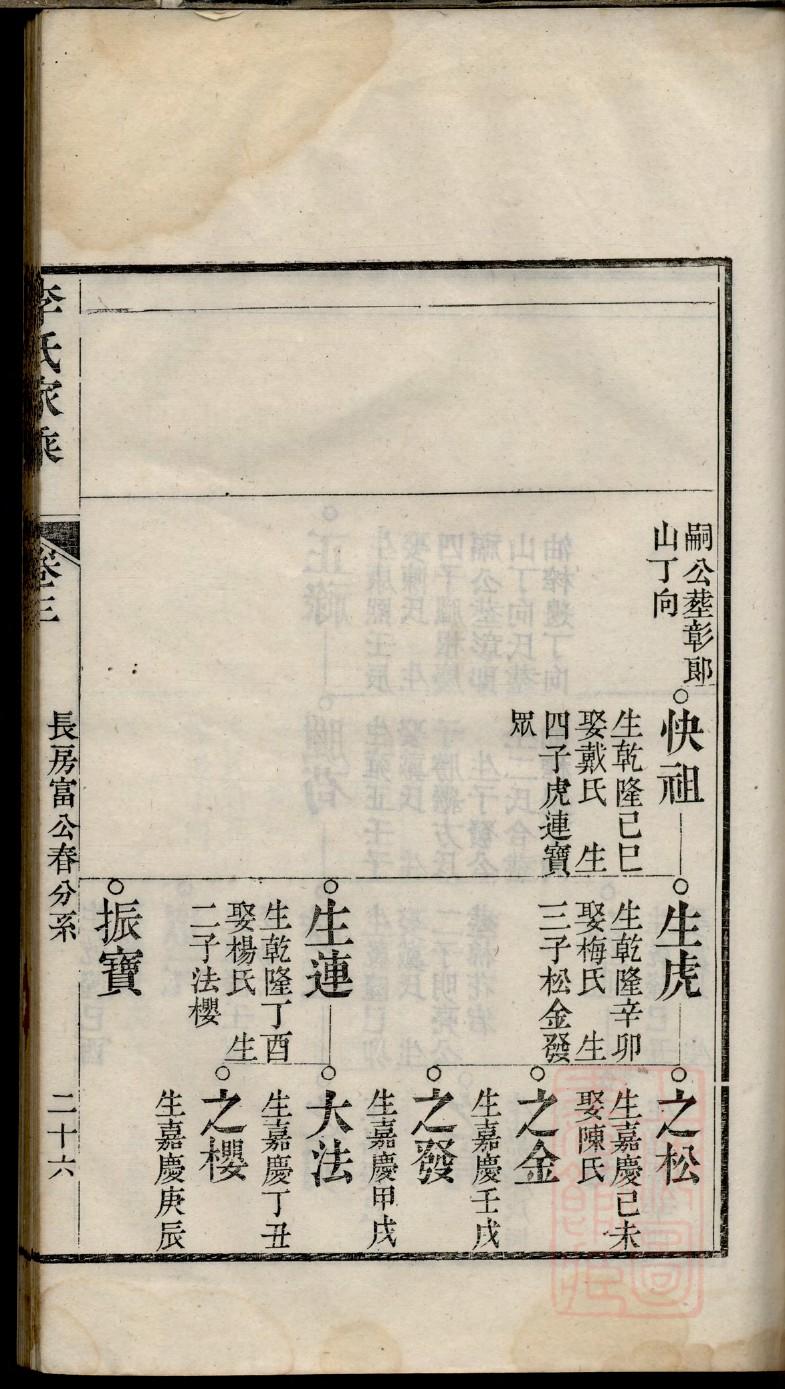 嗣公塟彰郎
山丁向
快祖
生乾隆己巳
娶戴氏 生
四子虎連寶
眾
生虎
生乾隆辛卯
娶梅氏 生
三子松金發
之松
生嘉慶己未
娶陳氏
之金
生嘉慶壬戌
之發
生嘉慶甲戌
生連
生乾隆丁酉
娶楊氏 生
二子法櫻
大法
生嘉慶丁丑
之櫻
生嘉慶庚辰
振寶
李氏家乘
卷三
長房富公春分系
二十六